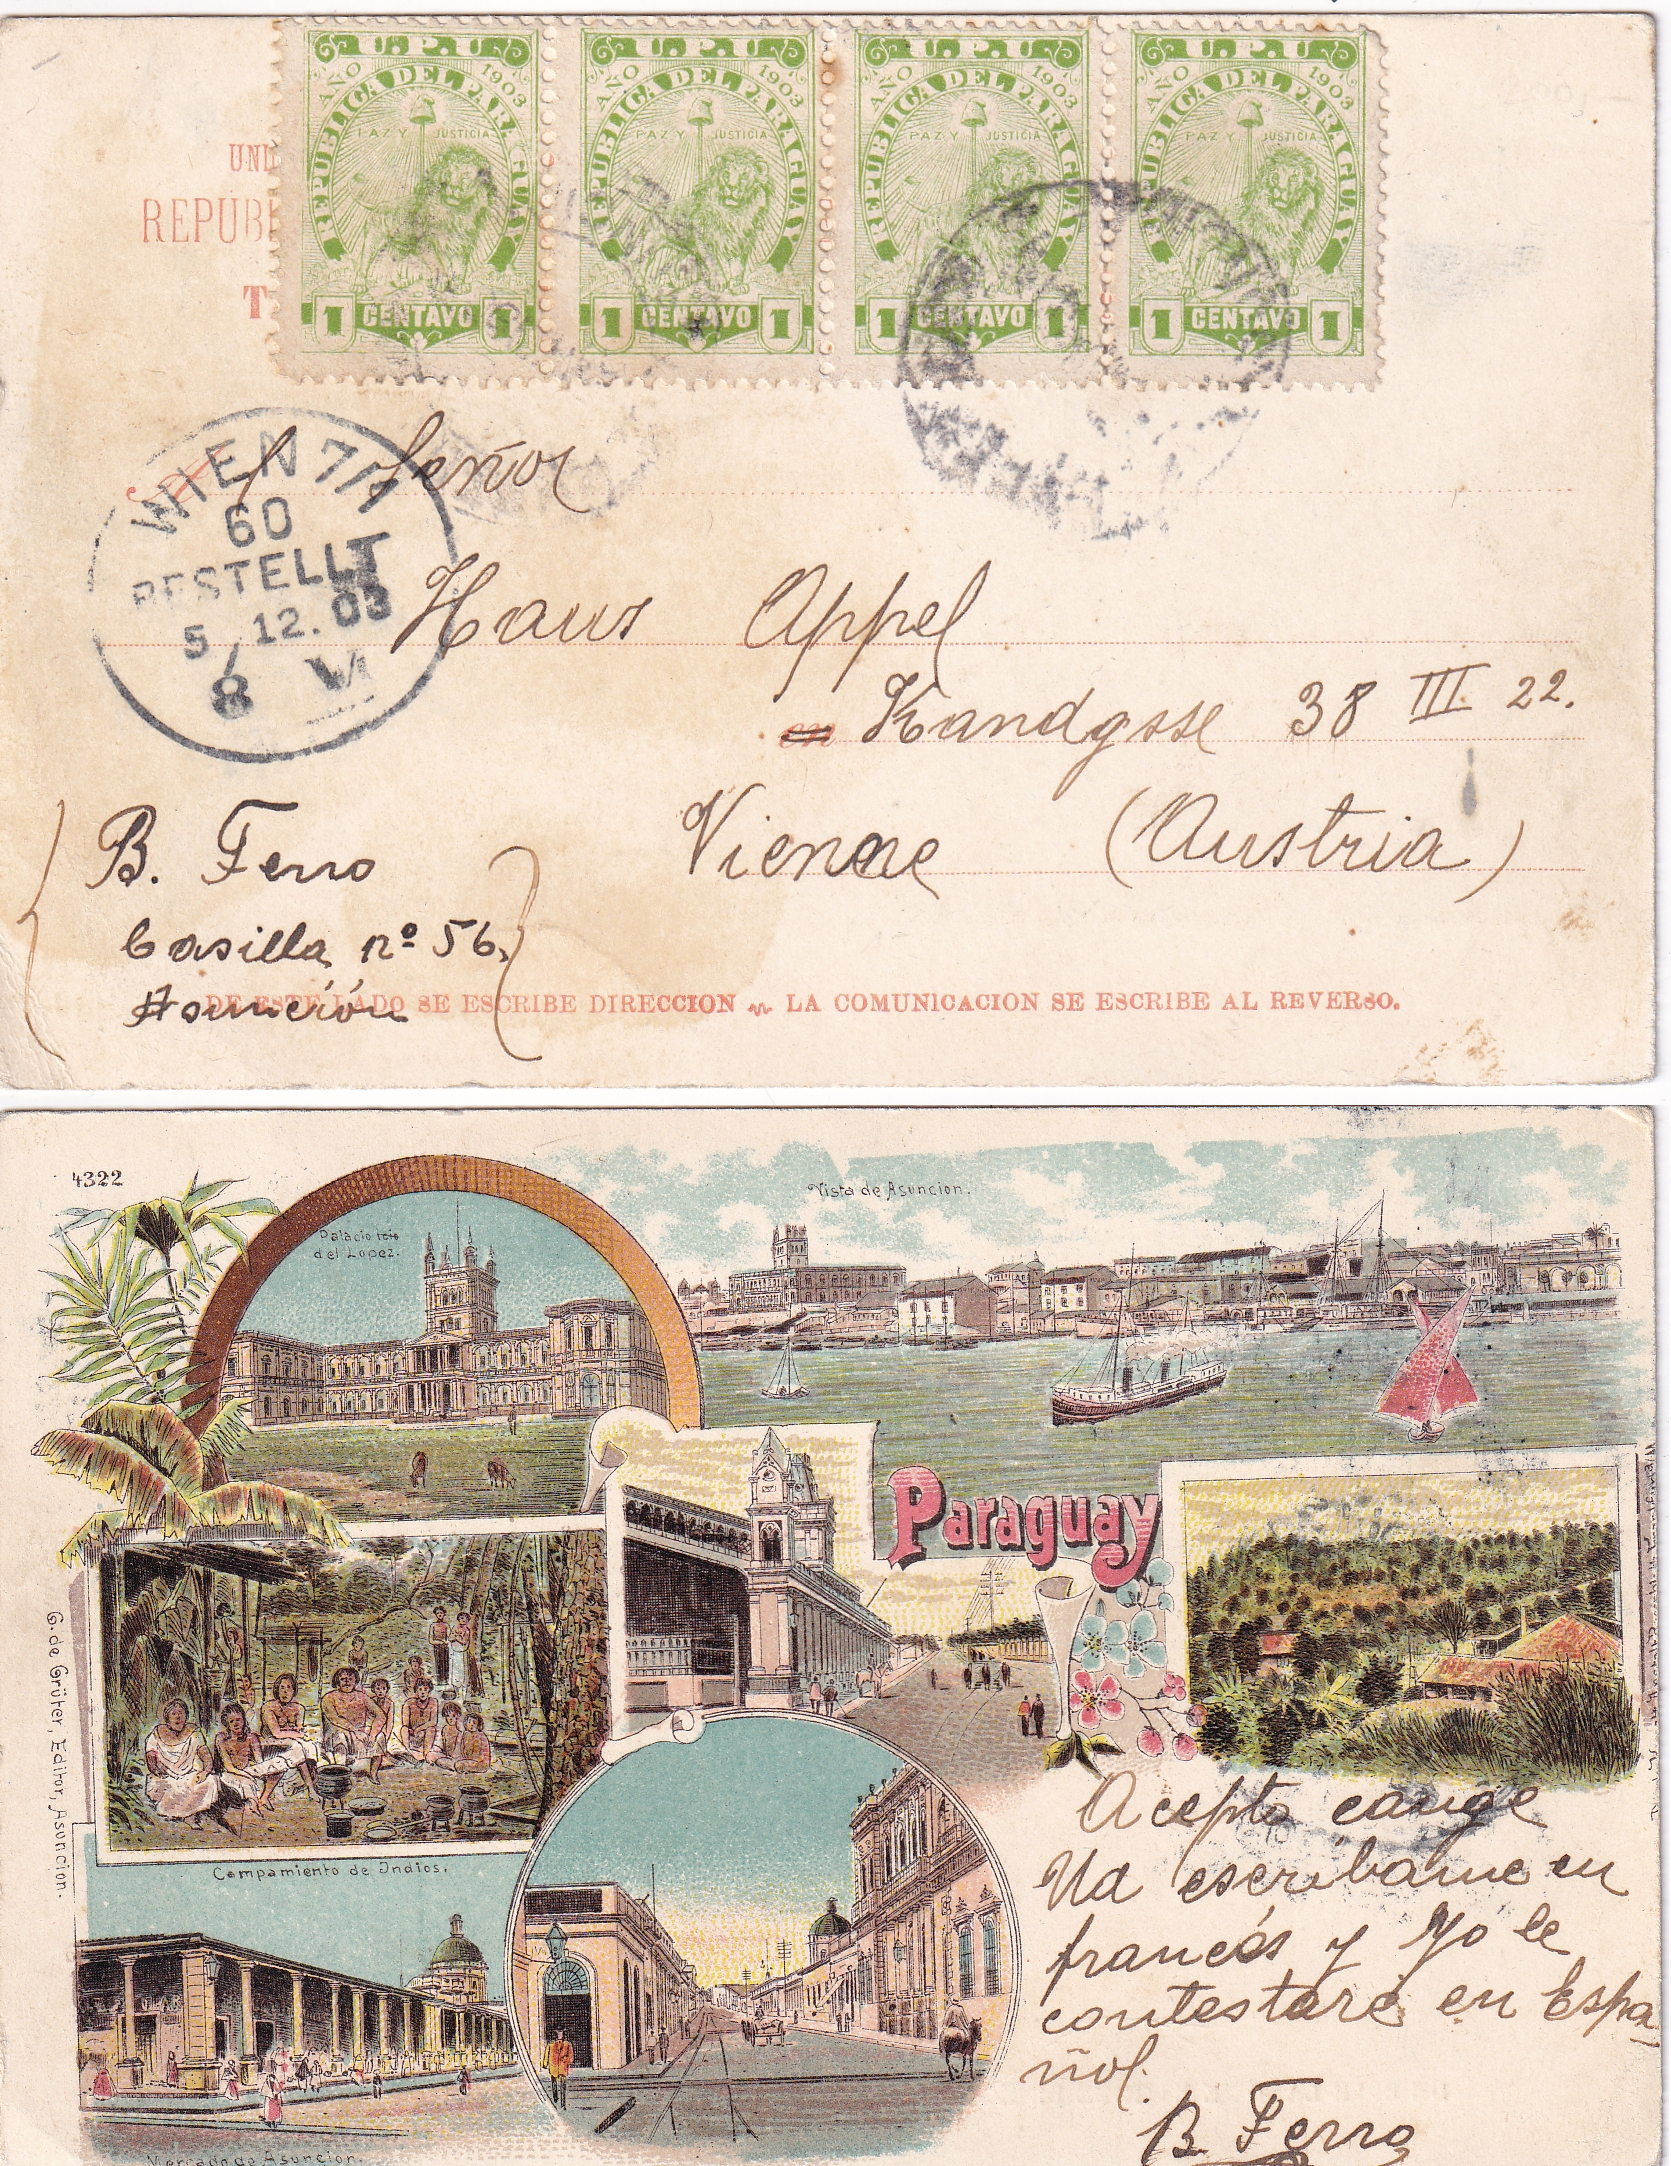 U.P.U U.P.U U.P.U U.P.U
AÑO 1903 AÑO 1903 AÑO 1903 AÑO 1903
REPUBLICA DEL PARAGUAY REPUBLICA DEL PARAGUAY REPUBLICA DEL PARAGUAY REPUBLICA DEL PARAGUAY
PAZ Y JUSTICIA PAZ Y JUSTICIA PAZ Y JUSTICIA PAZ Y JUSTICIA
1 CENTAVO 1 1 CENTAVO 1 1 CENTAVO 1 1 CENTAVO 1
UNI
REPUBL
T
WIEN 7/1
60
BESTELLT
5/12.03
8 V
Señor
Hans Appel
en Kandgsse 38 III. 22.
Vienne (Austria)
B. Ferro
Casilla nº 56,
Asunción
DE ESTE LADO SE ESCRIBE DIRECCION LA COMUNICACION SE ESCRIBE AL REVERSO.
4322
Palacio
del Lopez.
Vista de Asuncion.
Paraguay
Campamiento de Indios.
Mercado de Asuncion.
G. de Grüter, Editor, Asuncion.
Acepto cange
Ud escribame en
francés y Yo le
contestaré en Espa
ñol.
B. Ferro